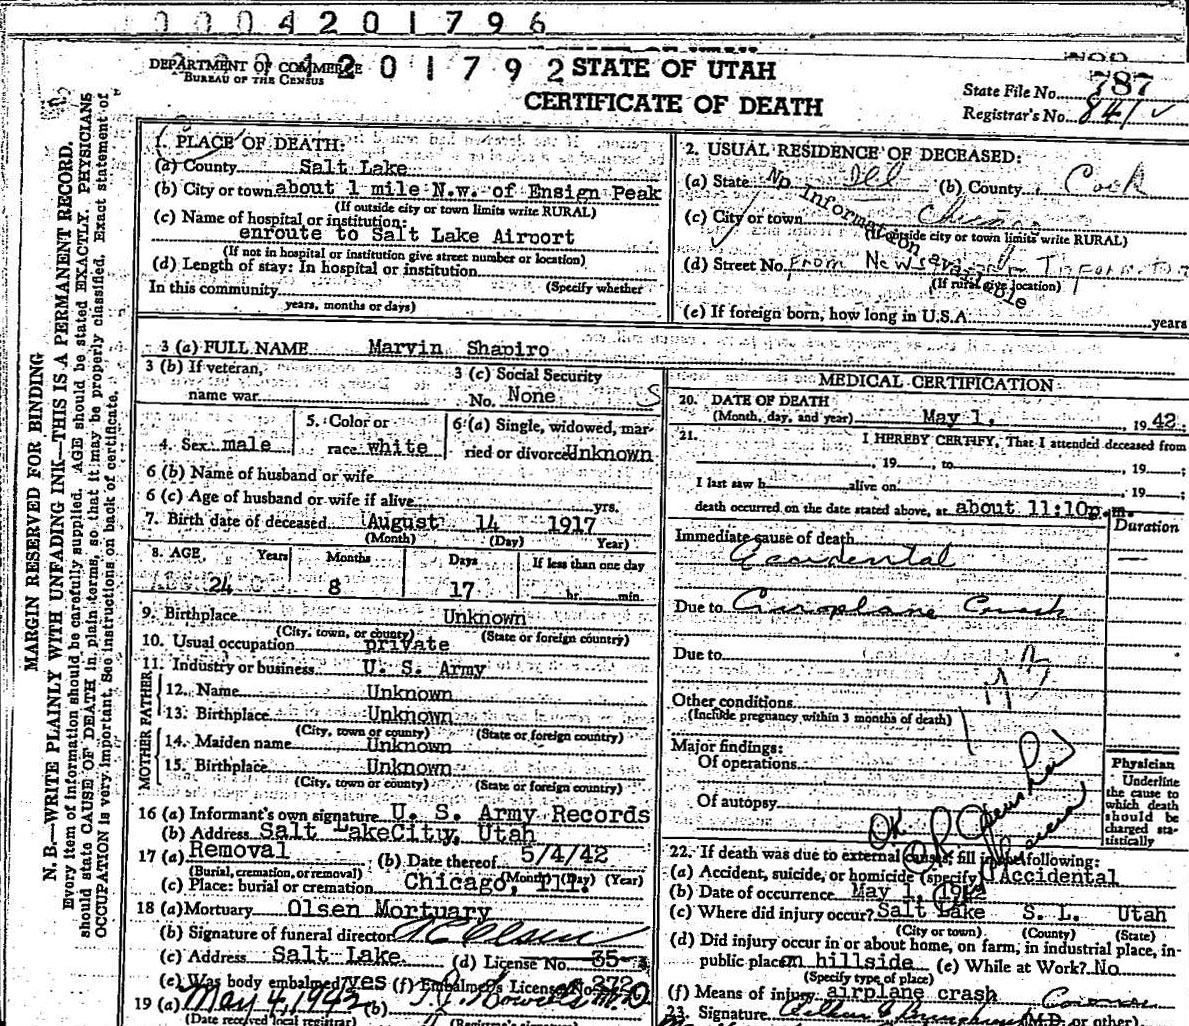 0004201796
DEPARTMENT OF COMMERCE
BUREAU OF THE CENSUS
01792
STATE OF UTAH
CERTIFICATE OF DEATH
State File No. 787
Registrar's No. 841
MARGIN RESERVED FOR BINDING
N. B.—WRITE PLAINLY WITH UNFADING INK—THIS IS A PERMANENT RECORD.
Every item of information should be carefully supplied. AGE should be stated EXACTLY. PHYSICIANS
should state CAUSE OF DEATH in plain terms, so that it may be properly classified. Exact statement of
OCCUPATION is very important. See instructions on back of certificate.
1. PLACE OF DEATH:
(a) County Salt Lake
(b) City or town about 1 mile N.w. of Ensign Peak
(If outside city or town limits write RURAL)
(c) Name of hospital or institution:
enroute to Salt Lake Airport
(If not in hospital or institution give street number or location)
(d) Length of stay: In hospital or institution
In this community (Specify whether
years, months or days)
2. USUAL RESIDENCE OF DECEASED:
(a) State Ill (b) County Cook
No Information available
(c) City or town Chicago
(If outside city or town limits write RURAL)
(d) Street No. From
(If rural give location)
(e) If foreign born, how long in U.S.A. years
3 (a) FULL NAME Marvin Shapiro
3 (b) If veteran,
name war
3 (c) Social Security
No. None
S
4. Sex male
5. Color or
race white
6 (a) Single, widowed, mar-
ried or divorced Unknown
6 (b) Name of husband or wife
6 (c) Age of husband or wife if alive yrs.
7. Birth date of deceased August 14 1917
(Month) (Day) Year)
8. AGE Years Months Days If less than one day
24 8 17 hr. min.
9. Birthplace Unknown
(City, town, or county) (State or foreign country)
10. Usual occupation private
11. Industry or business U. S. Army
FATHER
12. Name Unknown
13. Birthplace Unknown
(City, town or county) (State or foreign country)
MOTHER
14. Maiden name Unknown
15. Birthplace Unknown
(City, town or county) (State or foreign country)
16 (a) Informant's own signature U. S. Army Records
(b) Address Salt LakeCity, Utah
17 (a) Removal (b) Date thereof 5/4/42
(Burial, cremation, or removal) (Month) (Day) (Year)
(c) Place: burial or cremation Chicago, Ill.
18 (a) Mortuary Olsen Mortuary
(b) Signature of funeral director Olsen
(c) Address Salt Lake (d) License No. 35-
(e) Was body embalmed? yes (f) Embalmer's License No. 372
19 (a) May 4, 1942 (b)
(Date received local registrar) (Registrar's signature)
MEDICAL CERTIFICATION
20. DATE OF DEATH
(Month, day, and year) May 1, 19 42;
21. I HEREBY CERTIFY, That I attended deceased from
, 19 , to , 19 ;
I last saw h alive on , 19 ;
death occurred on the date stated above, at about 11:10p.m.
Duration
Immediate cause of death
Accidental
Due to Airoplane Crash
Due to
Other conditions
(Include pregnancy within 3 months of death)
Major findings:
Of operations
Of autopsy
OK
Physician
Underline
the cause to
which death
should be
charged sta-
tistically
22. If death was due to external causes, fill in the following:
(a) Accident, suicide, or homicide (specify) Accidental
(b) Date of occurrence May 1, 1942
(c) Where did injury occur? Salt Lake S. L. Utah
(City or town) (County) (State)
(d) Did injury occur in or about home, on farm, in industrial place, in-
public place on hillside (e) While at Work? No
(Specify type of place)
(f) Means of injury airplane crash
23. Signature (M.D. or other)